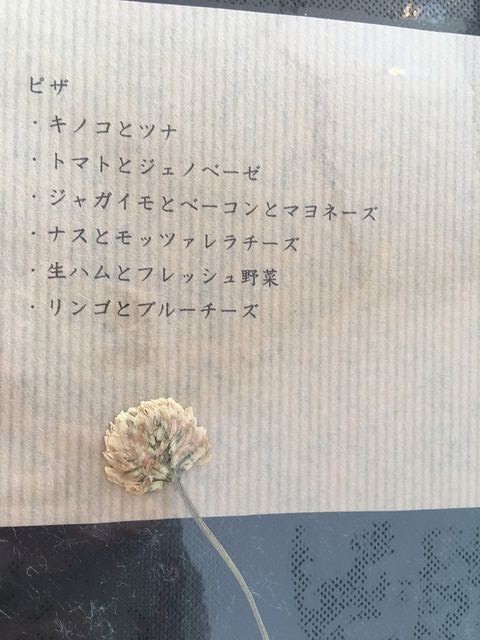 ピザ
・キノコとツナ
・トマトとジェノベーゼ
・ジャガイモとベーコンとマヨネーズ
・ナスとモッツァレラチーズ
・生ハムとフレッシュ野菜
・リンゴとブルーチーズ